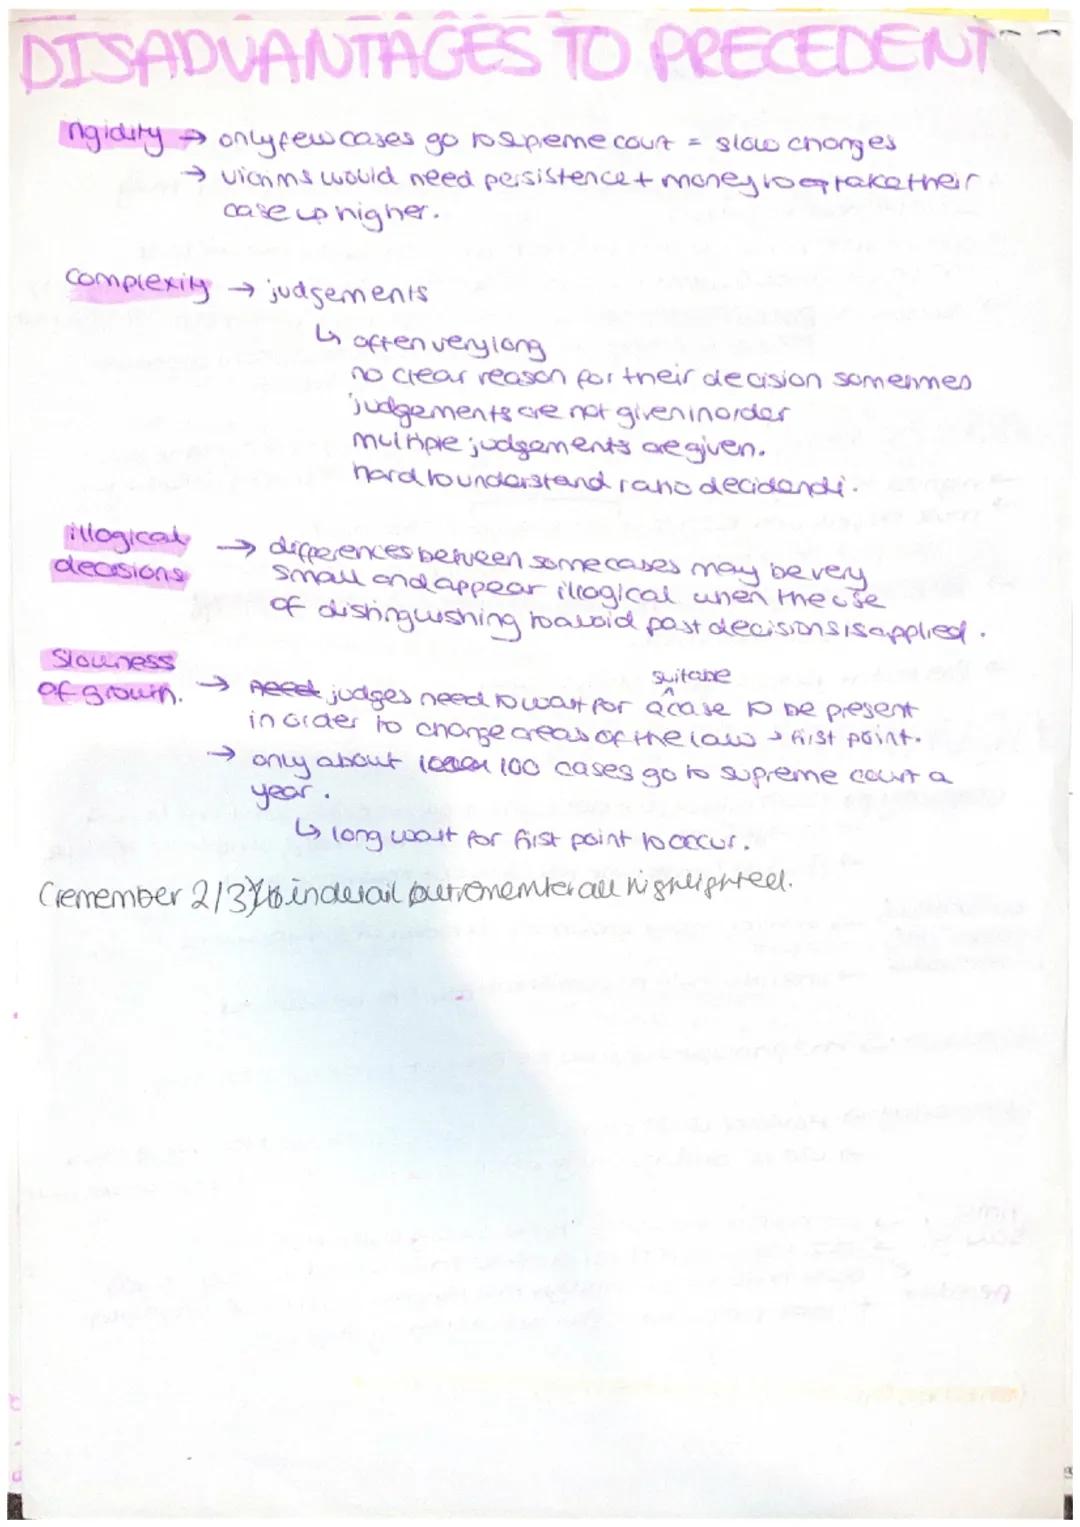 DISADVANTAGES TO PRECEDENT
rigidity → only few cases go to supreme court = slow changes
→ victims would need persistence + money to take their
case up higher.
Complexity → judgements
↳ often very long
no clear reason for their decision sometimes
judgements are not given in order
multiple judgements are given.
hard to understand ratio decidendi.
illogical → differences between some cases may be very
decisions small and appear illogical when the use
of distinguishing to avoid past decisions is applied.
Slowness
suitable
of growth. → judges need to wait for a case to be present
in order to change areas of the law → first point.
→ only about 100 cases go to supreme court a
year.
↳ long wait for first point to occur.
(remember 2/3 in detail but remember all highlighted.